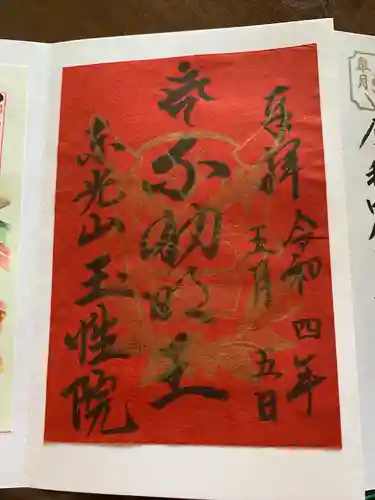 皐月
奉拝
令和四年
五月五日
赤不動明王
東光山玉性院